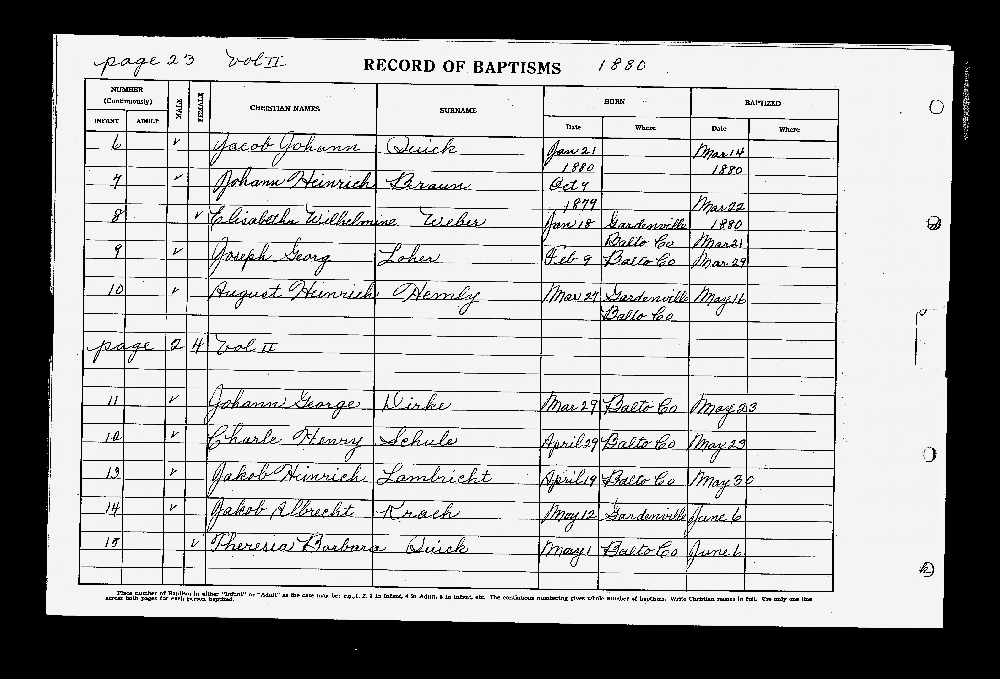 page 23 Vol II RECORD OF BAPTISMS 1880
NUMBER (Continuously) MALE FEMALE CHRISTIAN NAMES SURNAME BORN BAPTIZED
INFANT ADULT Date Where Date Where
6 ✓ Jacob Johann Quick Jan 21 Mar 14
1880 1880
7 ✓ Johann Heinrich Braun Oct 7
1879 Mar 22
8 ✓ Elisabetha Wilhelmine Weber Jan 18 Gardenville 1880
Balto Co Mar 21
9 ✓ Joseph Georg Loher Feb 9 Balto Co Mar 29
10 ✓ August Heinrich Hemly Mar 27 Gardenville May 16
Balto Co
page 24 Vol II
11 ✓ Johann George Dirke Mar 29 Balto Co May 23
12 ✓ Charle Henry Schule April 29 Balto Co May 23
13 ✓ Jakob Heinrich Lambricht April 19 Balto Co May 30
14 ✓ Jakob Albrecht Krach May 12 Gardenville June 6
15 ✓ Theresia Barbara Quick May 1 Balto Co June 6
Place number of Baptism in either "Infant" or "Adult" as the case may be: e.g., 1, 2, 3 in Infant, 4 in Adult, 5 in Infant, etc. The continuous numbering gives whole number of baptisms. Write Christian names in full. Use only one line
across both pages for each person baptized.